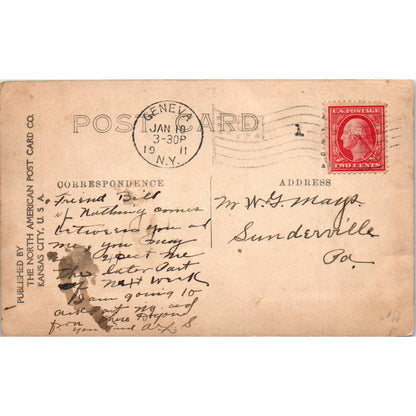 POST CARD
GENEVA
JAN 10
3-30P
19 11
N.Y.
1
U.S. POSTAGE
TWO CENTS
PUBLISHED BY
THE NORTH AMERICAN POST CARD CO.
KANSAS CITY, U.S.A.
CORRESPONDENCE
Friend Bill
if Nothing comes
between you and
me, you may
expect me
the later Part
of next week
I am going to
from there to you
your friend A.L.S
ADDRESS
Mr W.G. Mays
Sunderville
Pa